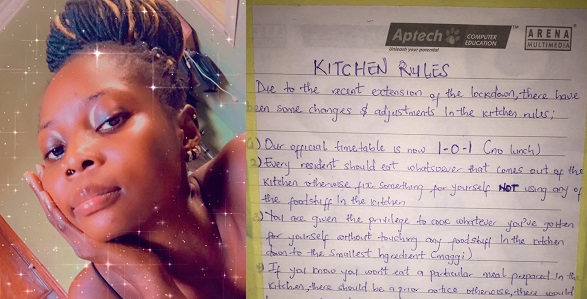 Aptech COMPUTER EDUCATION
Unleash your potential
ARENA MULTIMEDIA
KITCHEN RULES
Due to the recent extension of the lockdown, there have
been some changes & adjustments in the kitchen rules;
1) Our official timetable is now 1-0-1 (no lunch)
2) Every resident should eat whatsoever that comes out of the
kitchen otherwise fix something for yourself NOT using any of
the foodstuff in the kitchen
3) You are given the privilege to cook whatever you've gotten
for yourself without touching any foodstuff in the kitchen
down to the smallest ingredient (maggi)
4) If you know you won't eat a particular meal prepared in the
kitchen, there should be a prior notice otherwise, there would